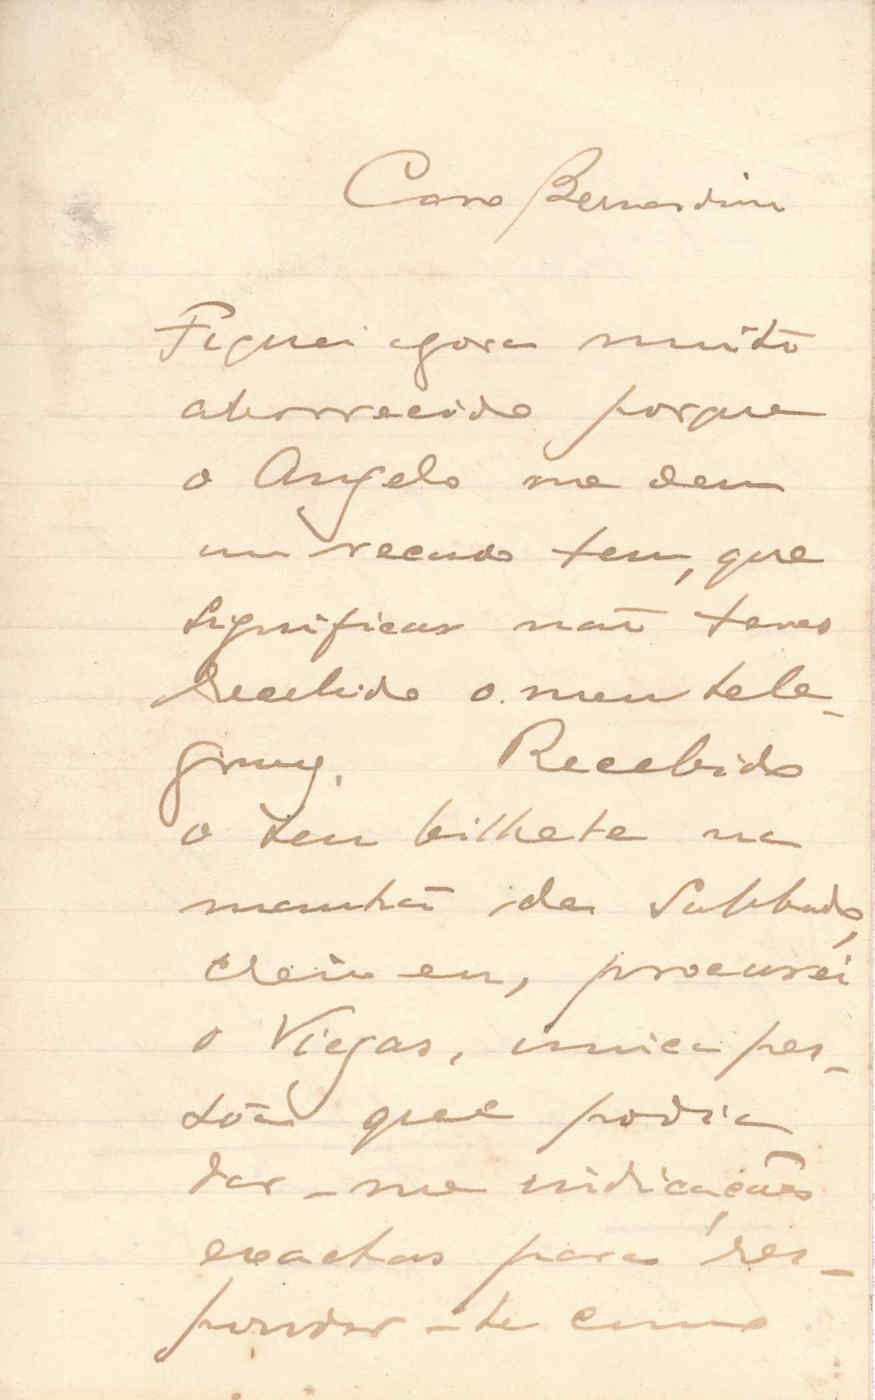 Caro Bernardim
Fiquei agora muito
aborrecido porque
o Angelo me deu
um recado teu, que
significar não teres
recebido o meu tele-
gramma. Recebido
o teu bilhete na
manhã de Sabbado,
creio eu, procurei
o Viegas, unica pes-
sôa que podia
dar-me indicações
exactas para res-
ponder-te como